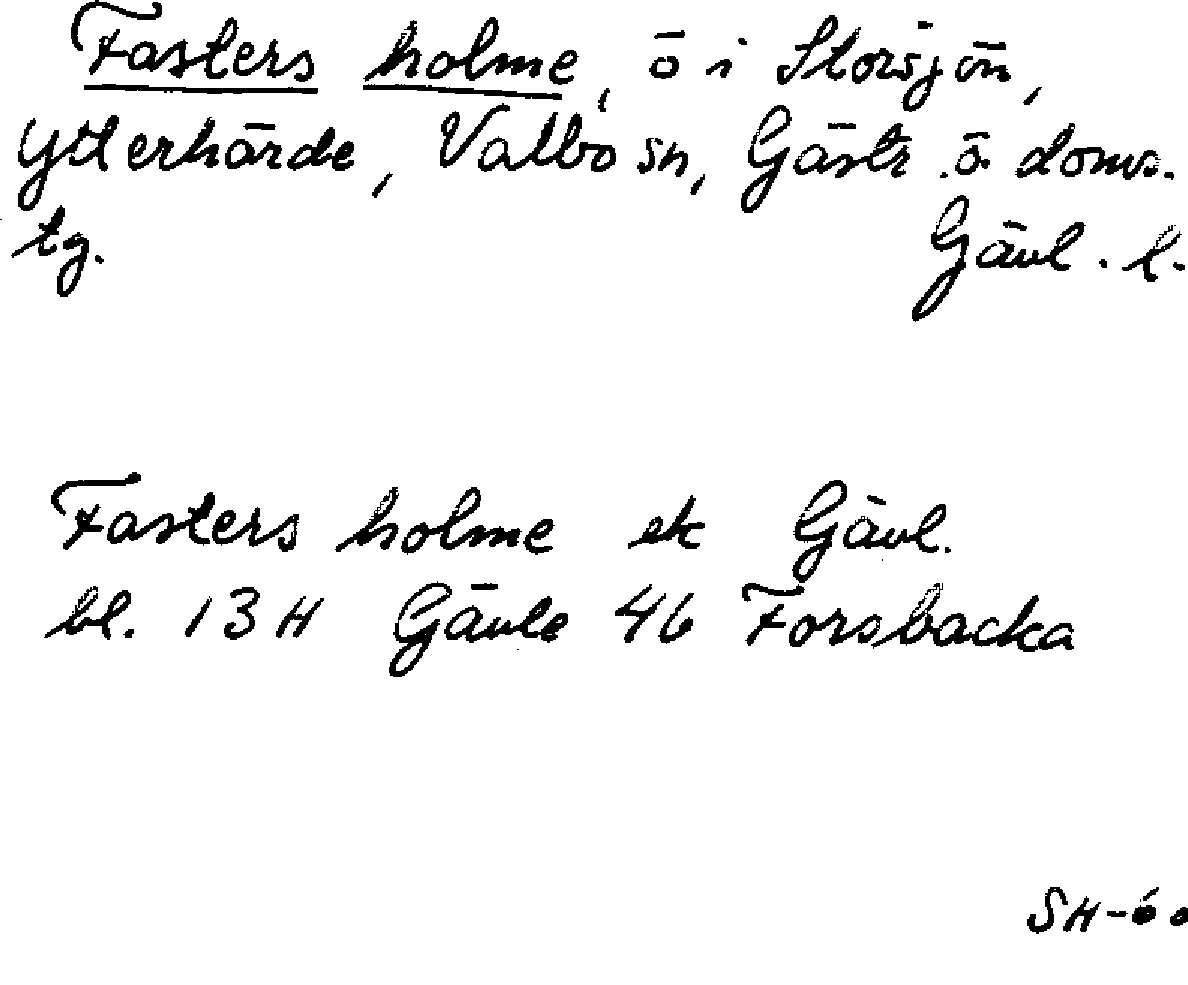 Fasters holme, ö i Storsjön,
Ytterhärde, Valbo sn, Gästr. ö. doms.
tg. Gävl. l.
Fasters holme ek Gävl.
bl. 13 H Gävle 4b Forsbacka
SH-60